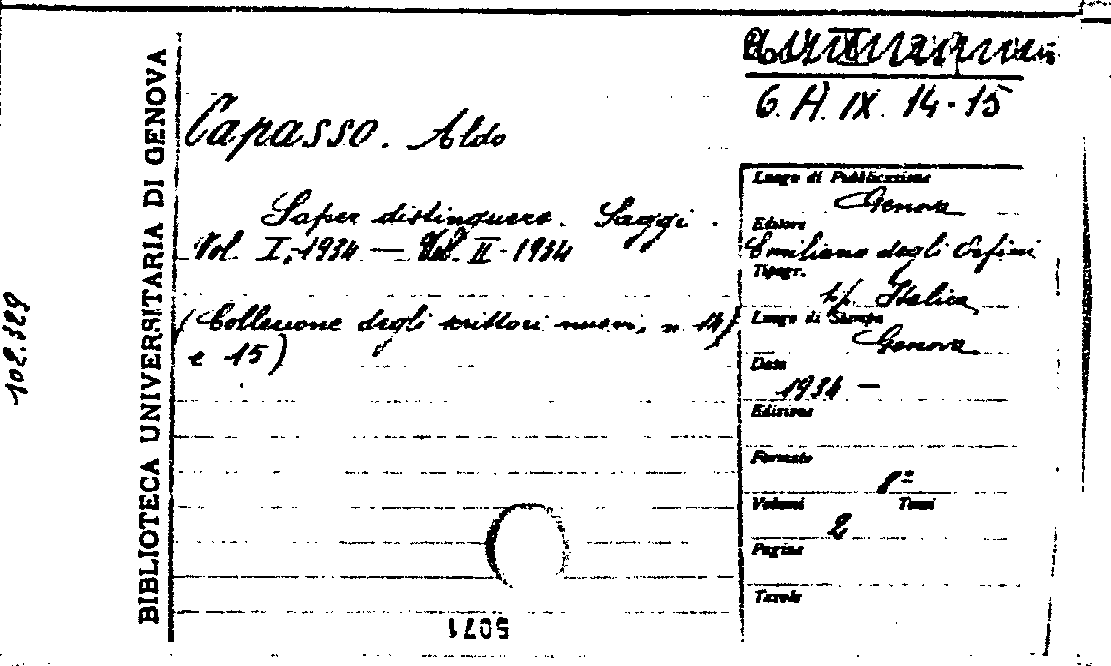 BIBLIOTECA UNIVERSITARIA DI GENOVA
102.329
6. A. IX. 14-15
Capasso. Aldo
Saper distinguere. Saggi.
Vol. I, 1934 — Vol. II - 1934
(Collezione degli scrittori nuovi, n 14
e 15)
Luogo di Pubblicazione
Genova
Editore
Emiliano degli Orfini
Tipogr.
tip. Italica
Luogo di Stampa
Genova
Data
1934 —
Edizione
Formato
8º
Volumi Tomi
2
Pagine
Tavole
5071